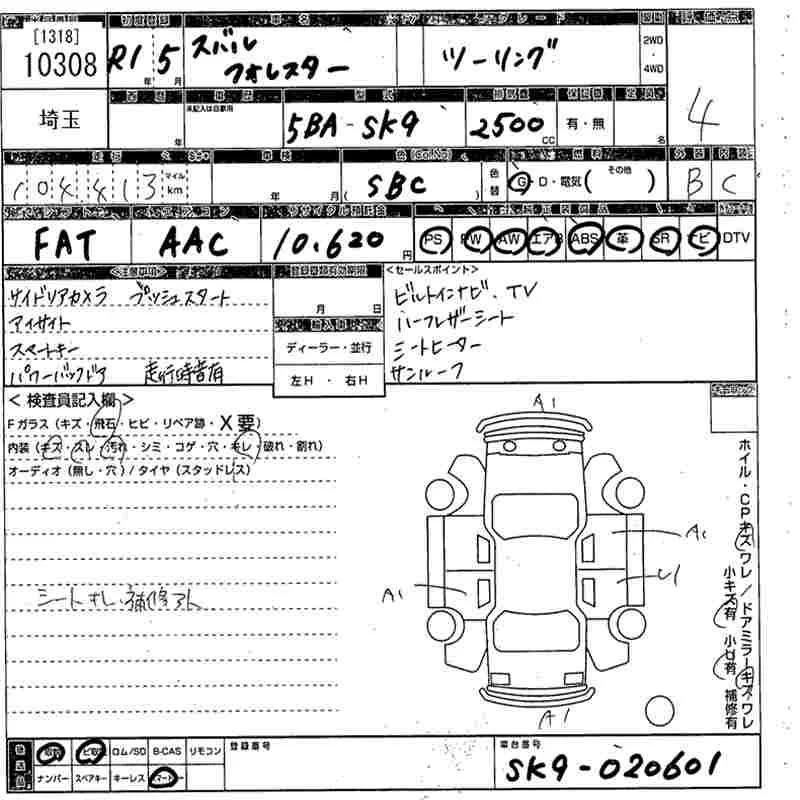 [1318]
10308
R1 5 スバル フォレスター ツーリング
年 月
2WD
・
4WD
埼玉
未記入は自家用
5BA-SK9 2500 CC 有・無 名
4
年
104413 マイル km 年 月 ( SBC ) 色替 G・D・電気( その他 ) B C
FAT AAC 10,620 円 PS PW AW エアB ABS 革 SR ナビ DTV
<セールスポイント>
サイドリアカメラ プッシュスタート
アイサイト
スマートキー
パワーバックドア 走行時音有
月 日
ディーラー・並行
左H ・ 右H
ビルトインナビ、TV
ハーフレザーシート
シートヒーター
サンルーフ
<検査員記入欄>
Fガラス(キズ・飛石・ヒビ・リペア跡・X要)
内装(キズ・スレ・汚れ・シミ・コゲ・穴・キレ・破れ・割れ)
オーディオ(無し・穴)/タイヤ(スタッドレス)
シートキレ、補修アト
A1
A1
A1
A1
ホイル・CPキズワレ/ドアミラーキズワレ
小キズ有 小凹有 補修有
ロム/SD B-CAS リモコン
ナンバー スペアキー キーレス
登録番号
車台番号
SK9-020601